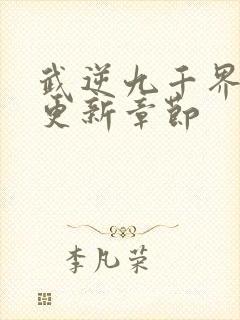 武逆九千界
更新章节
李凡荣